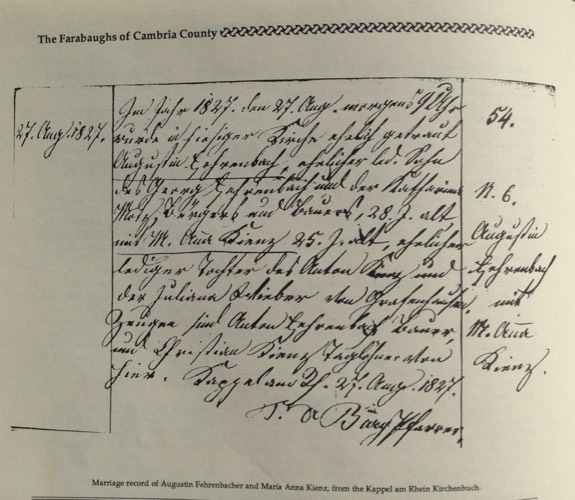 The Farabaughs of Cambria County
27. Aug. 1827.
Im Jahr 1827. den 27. Aug. morgens 9 Uhr
wurde in hiesiger Kirche ehelich getraut
Augustin Fehrenbach, ehelicher led. Sohn
des Georg Fehrenbach und der Katharina
Motz, Bürgers und Bauers, 28. J. alt
mit M. Anna Kienz 25. J. alt, ehelicher
lediger Tochter des Anton Kienz und
der Juliana von Grafenhausen,
Zeugen sind Anton Fehrenbach Bauer,
und Christian Kienz Taglöhner von
hier. Kappel am Rh. 27. Aug. 1827.
Pfarrer.
54.
N. 6.
Augustin
Fehrenbach
mit
M. Anna
Kienz.
Marriage record of Augustin Fehrenbacher and Maria Anna Kienz, from the Kappel am Rhein Kirchenbuch.